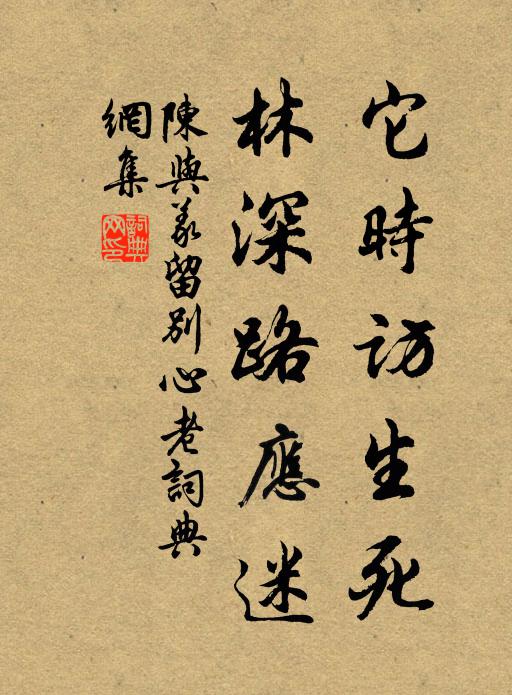 它時訪生死
林深路應迷
陳與義留別心老詞典
網集
詞典
网印